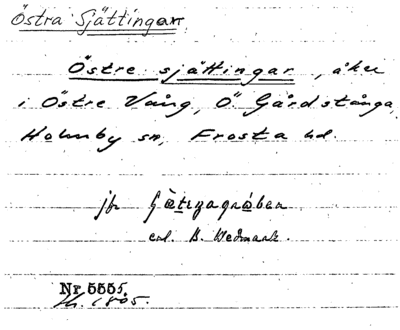 Östra Sjättingarr
Östre sjättingar, åker
i Östre Vång, Ö. Gårdstånga,
Holmby sn, Frosta hd.
jfr Gätızagraben
enl. B. Wedmark.
Nr 5555.
1805.